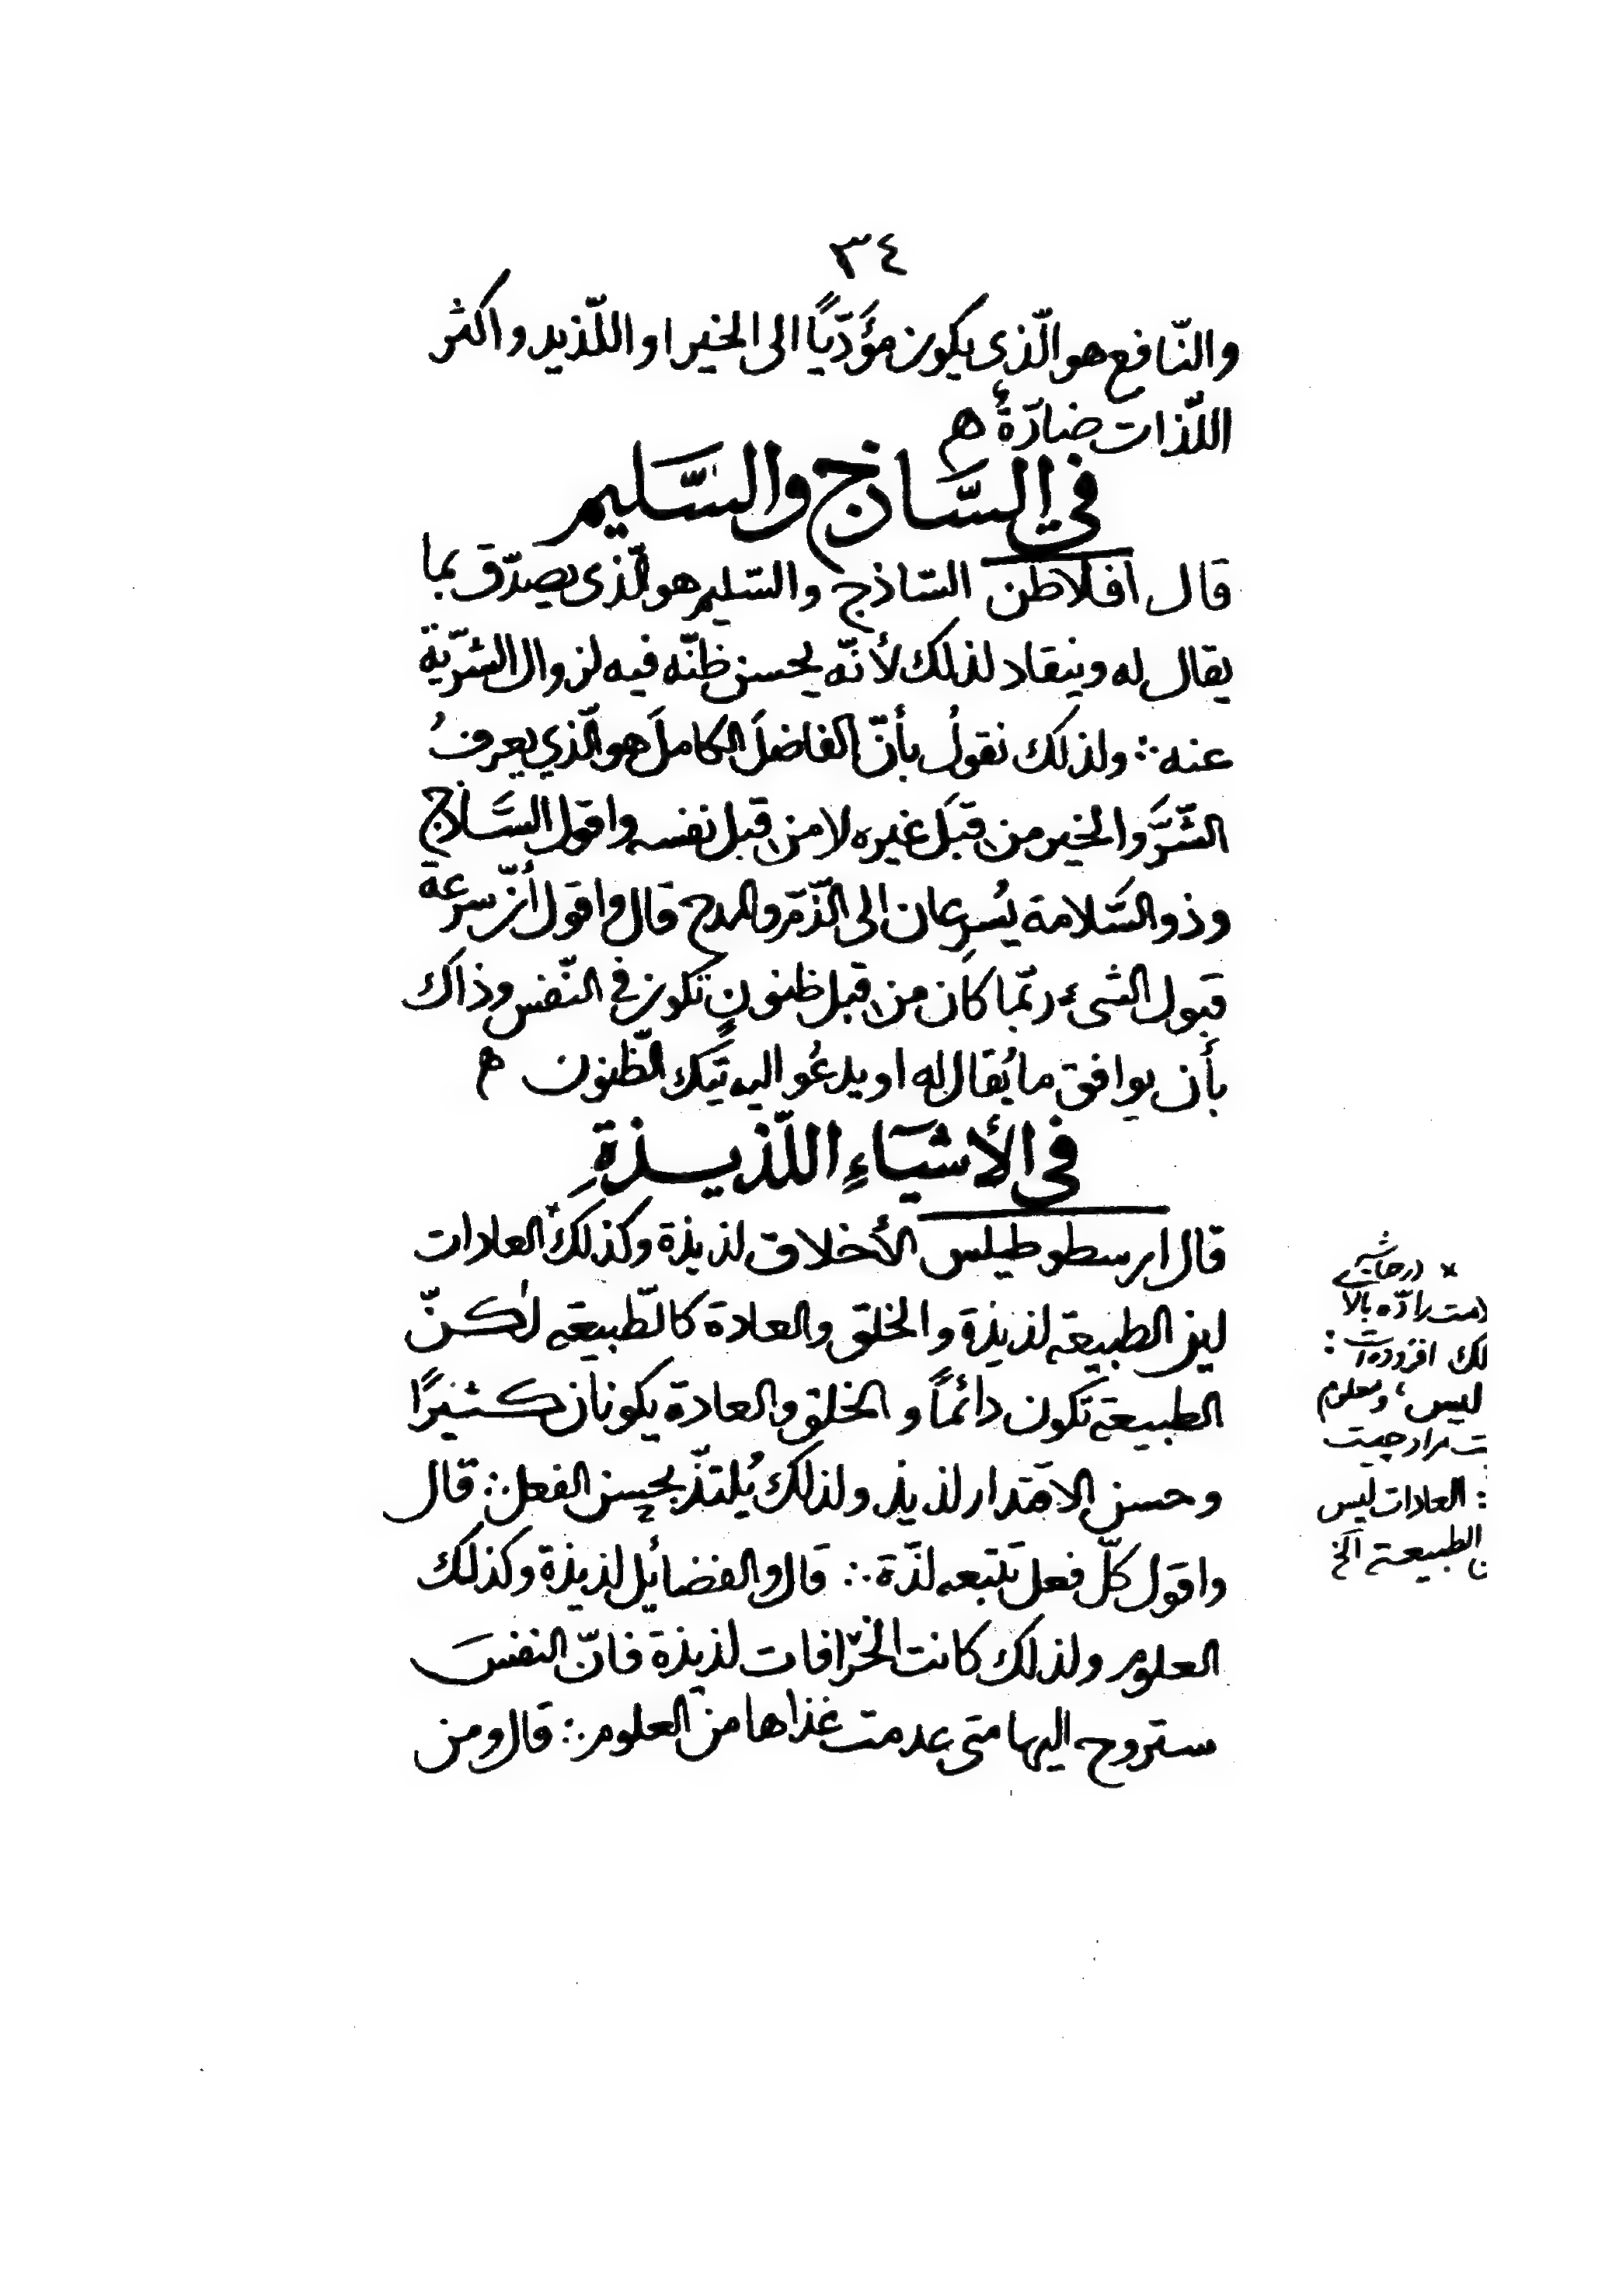 ٣٤
والنّافع هو الّذى يكون مؤَدّيًا الى الخير او اللّذيد واكثر
اللّذات ضارّةٌ ه‍م
في السَّاذج والسَّليم
قال افلاطن السّاذج والسّليم هو الّذى يصدّق بما
يقال له وينقاد لذلك لأنّه يحسن ظنّه فيه لزوال الشرّيّة
عنه ∴ ولذلك نقولُ بأنّ الفاضلَ الكاملَ هو الّذي يعرفُ
الشّرَّ والخير من قِبَل غيره لا من قِبل نفسه واقول السَّاذج
وذو السَّلامة يُسرِعان الى الذّمّ والمدح قال واقول أنّ سرعة
قبول الشىء ربّما كان من قِبل ظنونٍ تكون في النّفس وذاك
بأَن يوافق ما يُقال له او يدعُو اليه تيك الظّنون ه‍م
في الأَشيَاءِ اللّذيذةِ
قال ارسطوطيلس الأَخلاق لذيذة وكذلك× العادات
ليز الطبيعة لذيذة والخلق والعادة كالطّبيعة لٰكنّ
الطبيعة تكون دائمًا والخلق والعادة يكونان كثيرًا
وحسن الاقتدار لذيذ ولذلك يُلتذّ بحسن الفعل ∴ قال
واقول كلّ فعل تتبعه لذّة ∴ قال والفضائل لذيذة وكذلك
العلوم ولذلك كانت الخرّافات لذيذة فانّ النفسَ
ستروح اليها متى عدمت غذاها من العلوم ∴ قال ومن
× درحاشيه
علامت رادّه بالا
لك افزوده است :
ليس، ومعلوم
ت مراد چیست
: العادات ليس
الطبيعة الخ